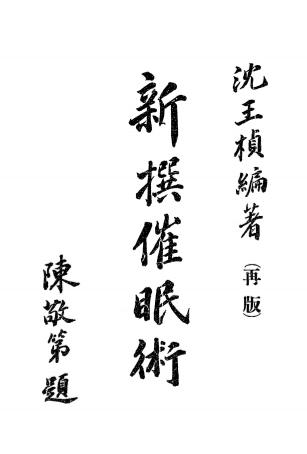 沈王楨編著（再版）
新撰催眠術
陳敬第題